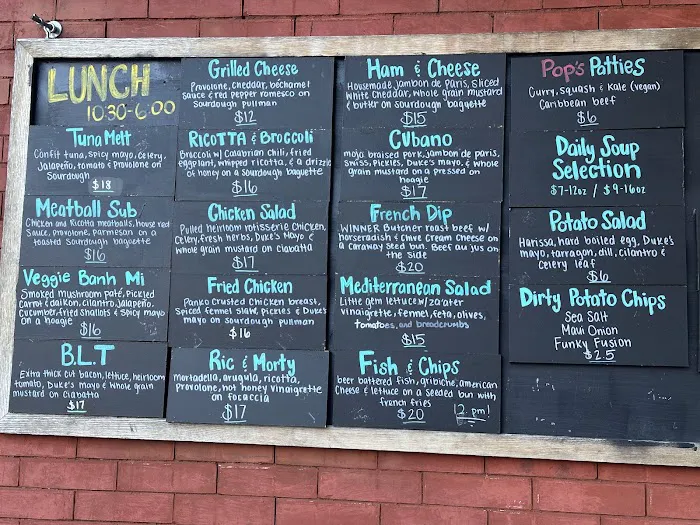 LUNCH
10:30-6:00
Tuna Melt
Confit tuna, spicy mayo, celery,
Jalapeño, tomato & provolone on
Sourdough
$18
Meatball Sub
Chicken and Ricotta meatballs, house red
Sauce, provolone, parmesan on a
toasted Sourdough baguette
$16
Veggie Banh Mi
Smoked mushroom paté, pickled
Carrot & daikon, cilantro, jalapeño,
Cucumber, fried shallots & Spicy mayo
on a hoagie
$16
B.L.T
Extra thick cut bacon, lettuce, heirloom
tomato, Duke's mayo & whole grain
mustard on Ciabatta
$17
Grilled Cheese
Provolone, cheddar, béchamel
Sauce & red pepper romesco on
Sourdough pullman
$12
RICOTTA & BROCCOLI
Broccoli w/ Calabrian chili, fried
eggplant, whipped ricotta, & a drizzle
of honey on a sourdough baguette
$16
Chicken Salad
Pulled heirloom rotisserie chicken,
Celery, fresh herbs, Duke's Mayo &
whole grain mustard on ciabatta
$17
Fried Chicken
Panko crusted chicken breast,
Spiced fennel slaw, pickles & Duke's
mayo on sourdough pullman
$16
Ric & Morty
mortadella, arugula, ricotta,
provolone, hot honey vinaigrette
on focaccia
$17
Ham & Cheese
Housemade jambon de paris, sliced
White Cheddar, whole grain mustard
& butter on sourdough baguette
$15
CUbano
mojo braised pork, jambon de paris,
swiss, pickles, Duke's mayo, & whole
grain mustard on a pressed on
hoagie
$17
French Dip
WINNER Butcher roast beef w/
horseradish & Chive Cream Cheese on
a Caraway seed bun. Beef au jus on
the side
$20
Mediterranean Salad
Little gem lettuce w/ za'ater
vinaigrette, fennel, feta, olives,
tomatoes, and breadcrumbs
$15
Fish & Chips
beer battered fish, gribiche, american
Cheese & lettuce on a Seeded bun with
french fries
$20
12 pm!
Pop's Patties
Curry, Squash & Kale (vegan)
Caribbean beef
$6
Daily Soup
Selection
$7-12oz / $9-16oz
Potato Salad
Harissa, hard boiled egg, Duke's
mayo, tarragon, dill, cilantro &
celery leaf
$6
Dirty Potato Chips
Sea Salt
Maui Onion
Funky Fusion
$2.5